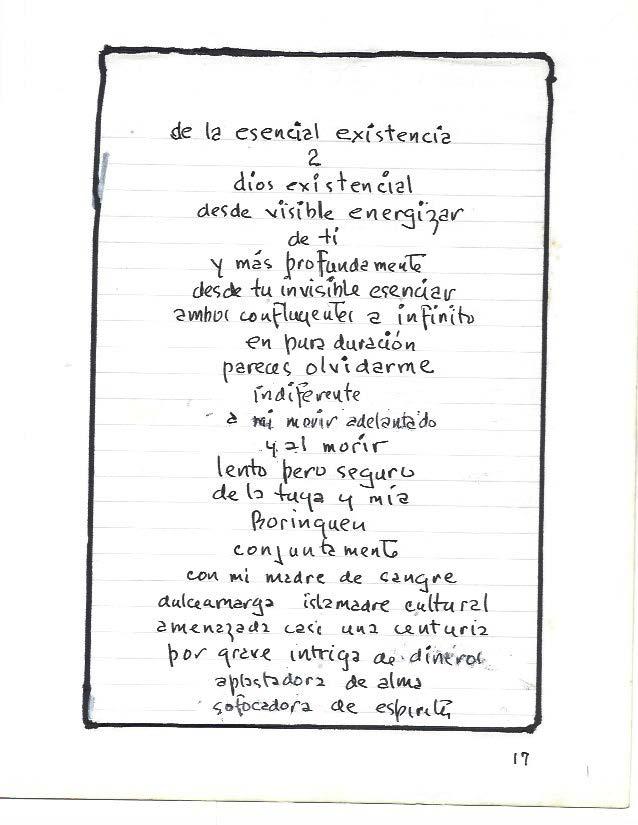 de la esencial existencia
2
dios existencial
desde visible energizar
de ti
y más profundamente
desde tu invisible esenciar
ambos confluyentes a infinito
en pura duración
pareces olvidarme
indiferente
a mi morir adelantado
y al morir
lento pero seguro
de la tuya y mía
Borinquen
conjuntamente
con mi madre de sangre
dulceamarga islamadre cultural
amenazada casi una centuria
por grave intriga de dineros
aplastadora de alma
sofocadora de espíritu
17